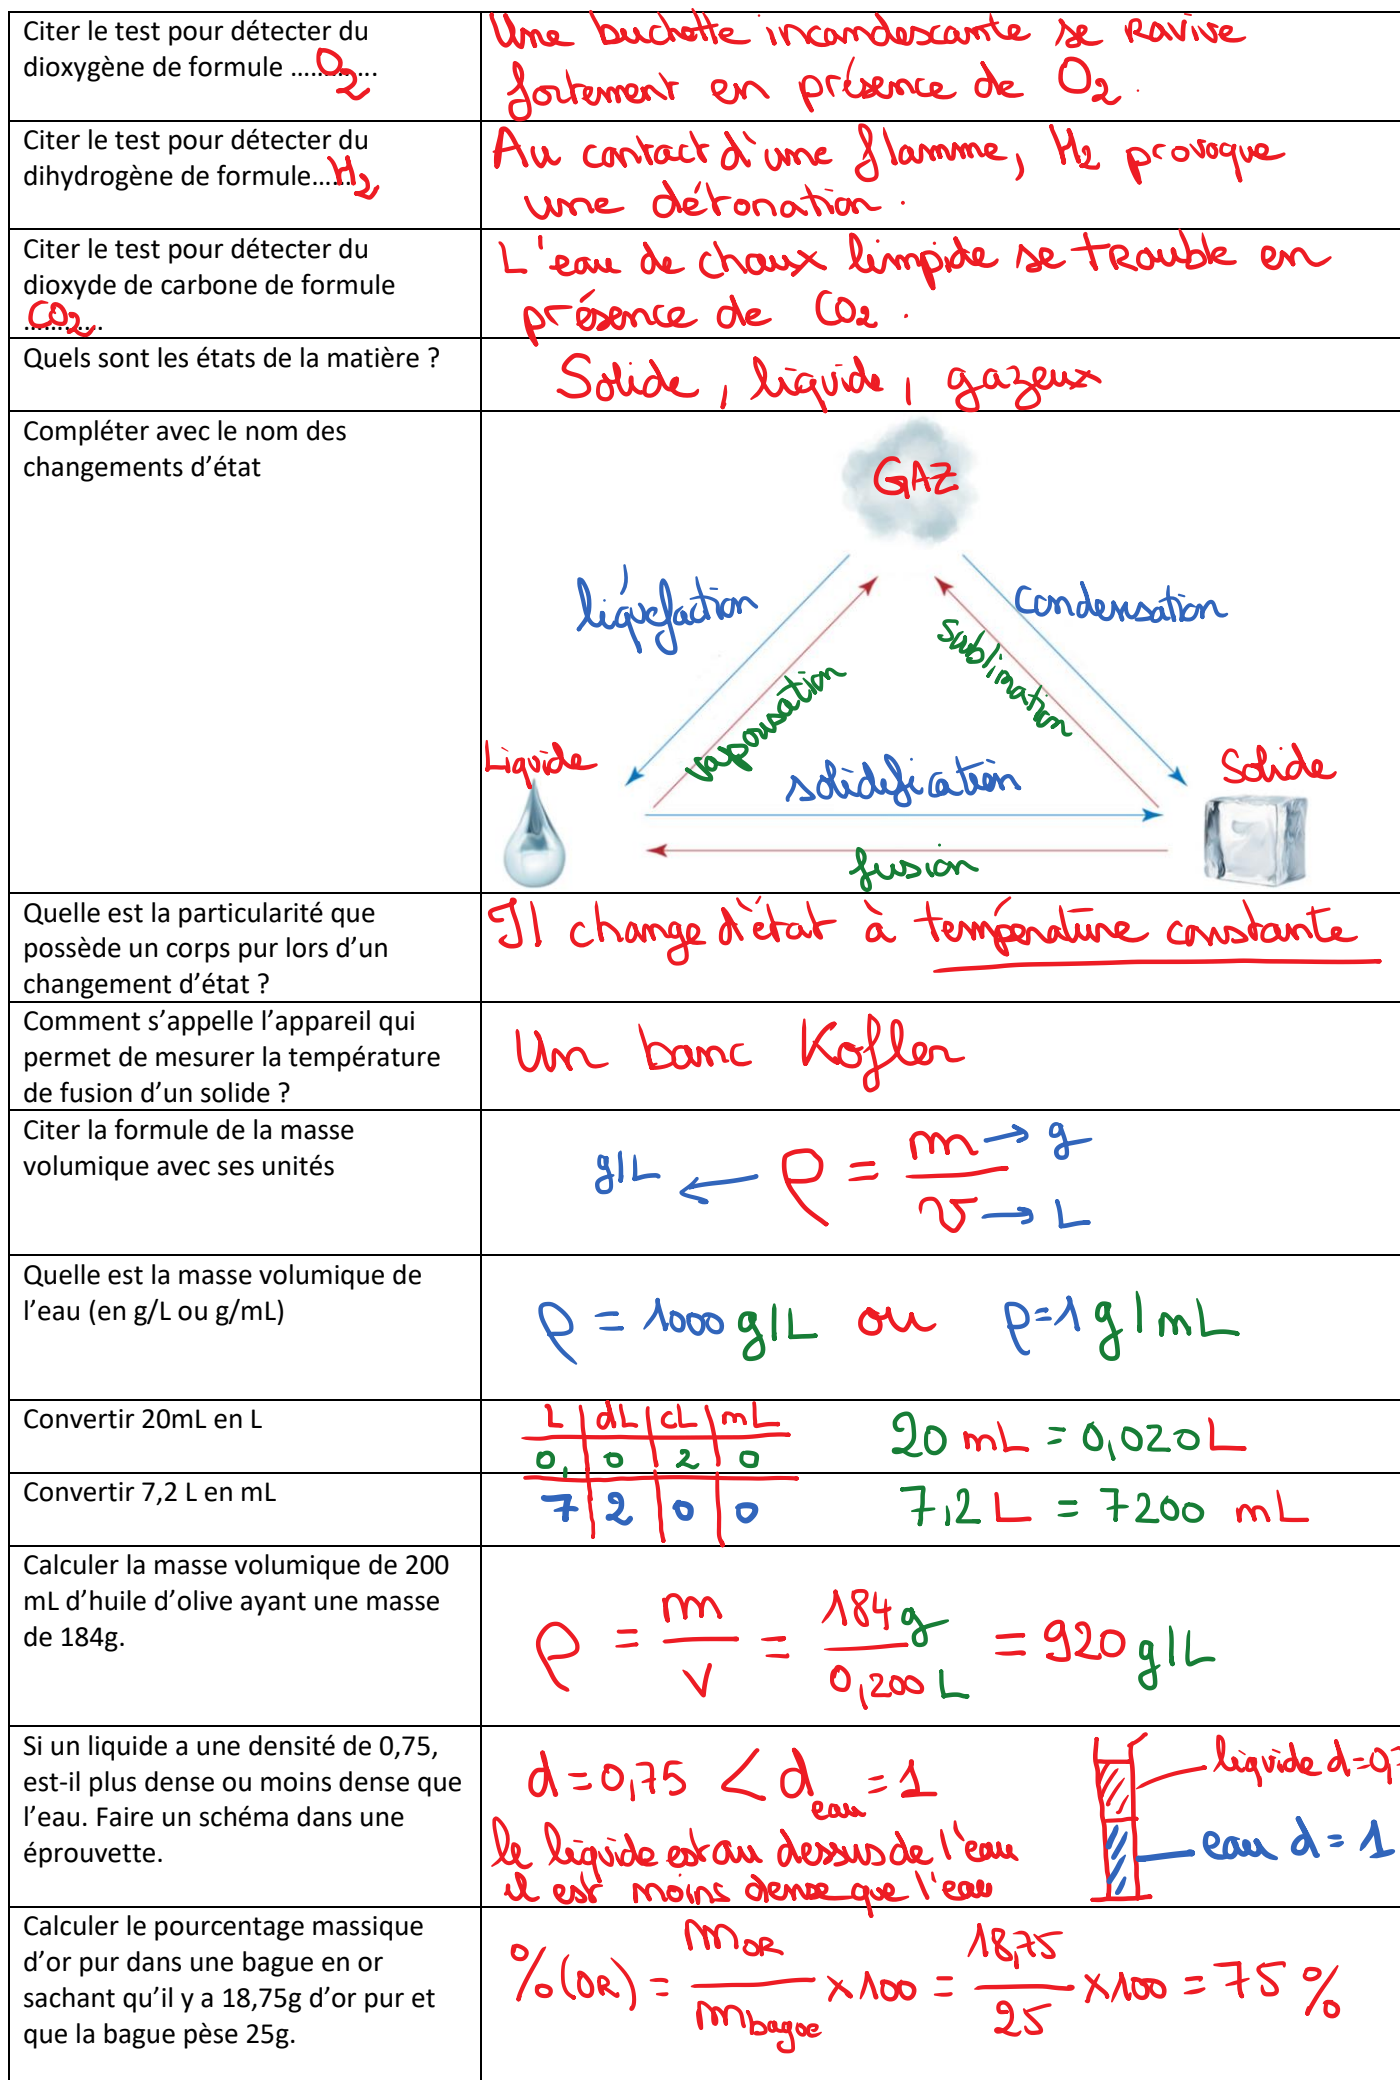 Citer le test pour détecter du
dioxygène de formule ............. O₂
Une buchette incandescante se ravive
fortement en présence de O₂.
Citer le test pour détecter du
dihydrogène de formule...... H₂
Au contact d'une flamme, H₂ provoque
une détonation.
Citer le test pour détecter du
dioxyde de carbone de formule
............ CO₂
L'eau de chaux limpide se trouble en
présence de CO₂.
Quels sont les états de la matière ?
Solide, liquide, gazeux
Compléter avec le nom des
changements d'état
GAZ
liquéfaction
condensation
sublimation
vaporisation
Liquide
Solide
solidification
fusion
Quelle est la particularité que
possède un corps pur lors d'un
changement d'état ?
Il change d'état à température constante
Comment s'appelle l'appareil qui
permet de mesurer la température
de fusion d'un solide ?
Un banc Kofler
Citer la formule de la masse
volumique avec ses unités
g/L ← ρ = m → g
v → L
Quelle est la masse volumique de
l'eau (en g/L ou g/mL)
ρ = 1000 g/L ou ρ = 1 g/mL
Convertir 20mL en L
L | dL | cL | mL
0, | 0 | 2 | 0
20 mL = 0,020 L
Convertir 7,2 L en mL
7 | 2 | 0 | 0
7,2 L = 7200 mL
Calculer la masse volumique de 200
mL d'huile d'olive ayant une masse
de 184g.
ρ = m/V = 184 g / 0,200 L = 920 g/L
Si un liquide a une densité de 0,75,
est-il plus dense ou moins dense que
l'eau. Faire un schéma dans une
éprouvette.
d = 0,75 < d eau = 1
le liquide est au dessus de l'eau
il est moins dense que l'eau
liquide d=0,7
eau d = 1
Calculer le pourcentage massique
d'or pur dans une bague en or
sachant qu'il y a 18,75g d'or pur et
que la bague pèse 25g.
%(OR) = m OR / m bague × 100 = 18,75 / 25 × 100 = 75 %